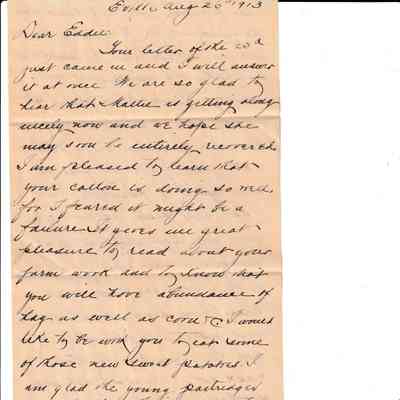 Aug 26th 1913
Dear Eddie:
Your letter of the
just came in and I will answer
it at once We are so glad to
hear that Mattie is getting along
nicely now and we hope she
may soon be entirely recovered
I am pleased to learn that
your cotton is doing so well
for I feared it might be a
failure. It gives me great
pleasure to read about your
farm work and to know that
you will have abundance of
hay as well as corn &c I would
like to be with you to eat some
of those new sweet potatoes. I
am glad the young partridges